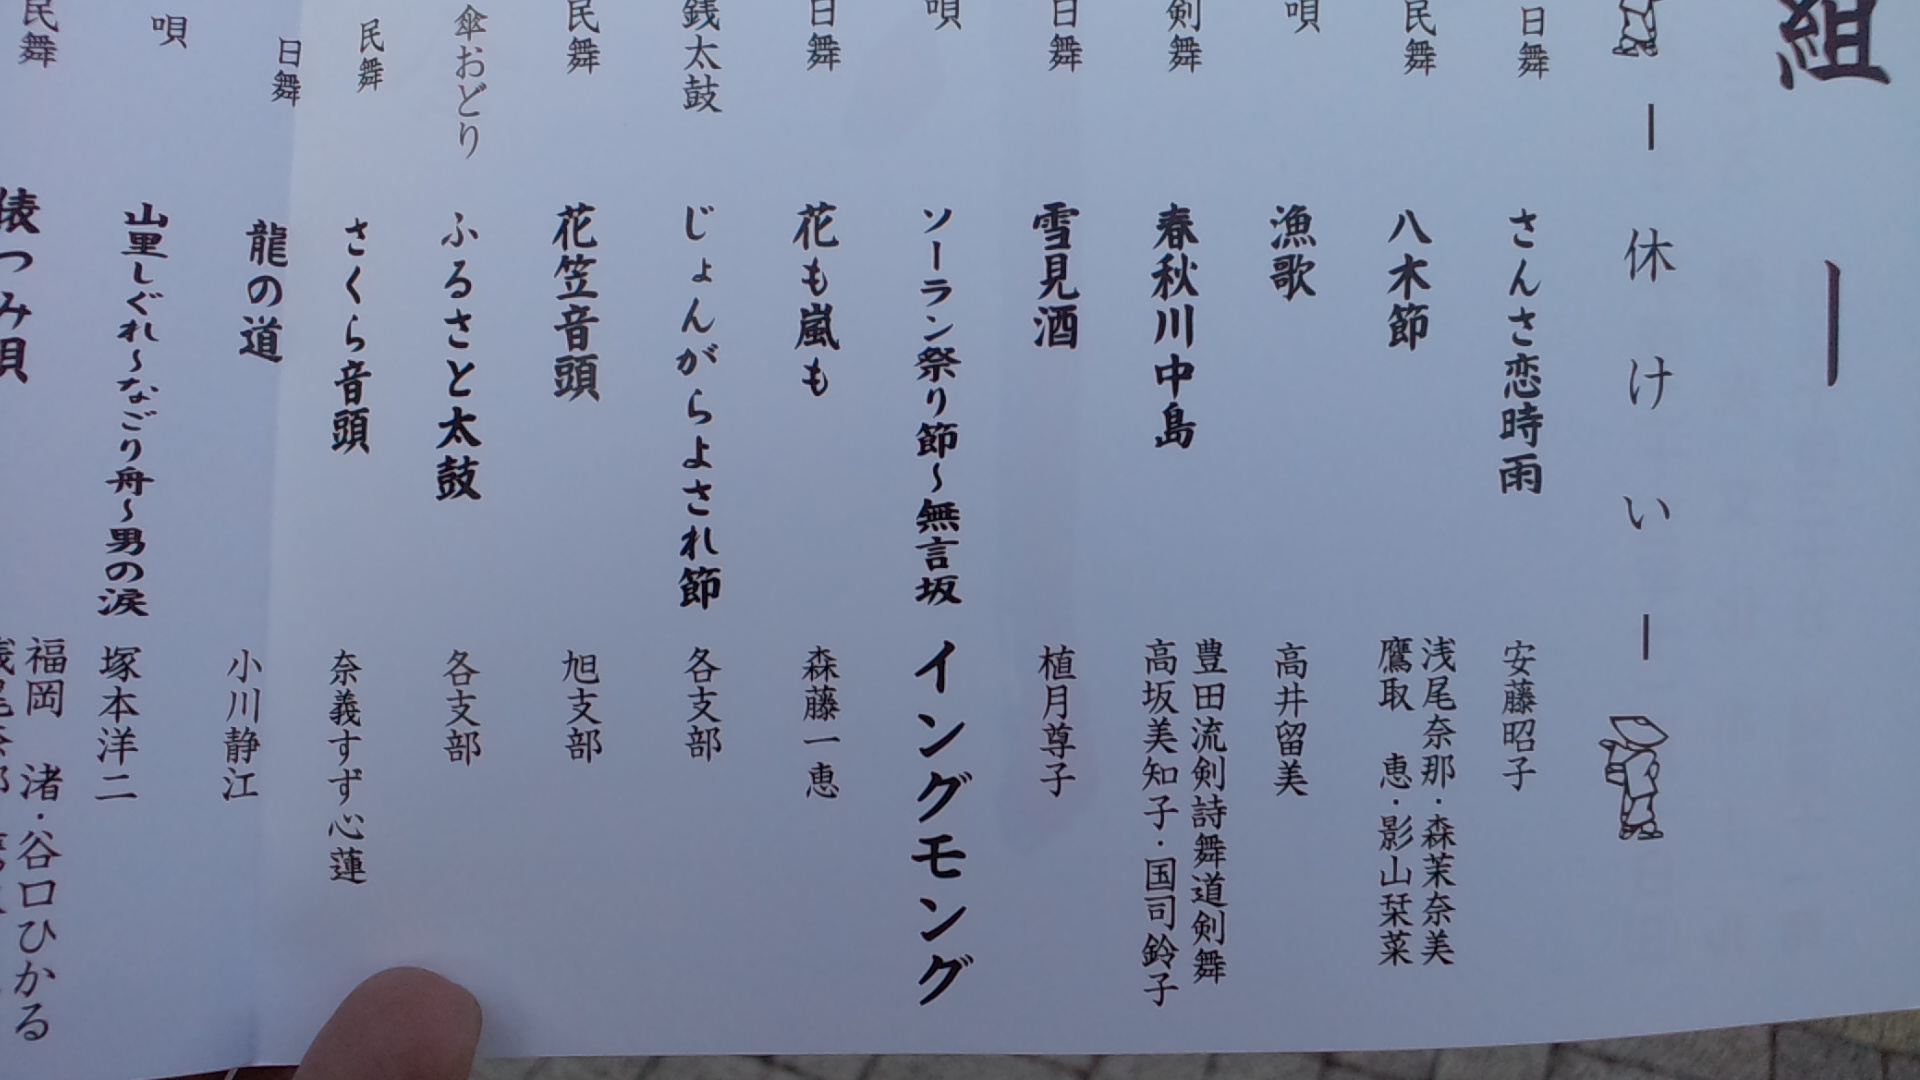 組
ー
ー 休けい ー
日舞 さんさ恋時雨 安藤昭子
民舞 八木節 浅尾奈那・森茉奈美
鷹取 恵・影山栞菜
唄 漁歌 高井留美
剣舞 春秋川中島 豊田流剣詩舞道剣舞
高坂美知子・国司鈴子
日舞 雪見酒 植月尊子
唄 ソーラン祭り節～無言坂 イングモング
日舞 花も嵐も 森藤一恵
銭太鼓 じょんがらよされ節 各支部
民舞 花笠音頭 旭支部
傘おどり ふるさと太鼓 各支部
民舞 さくら音頭 奈義すず心蓮
日舞 龍の道 小川静江
唄 山里しぐれ～なごり舟～男の涙 塚本洋二
民舞 俵つみ唄 福岡 渚・谷口ひかる